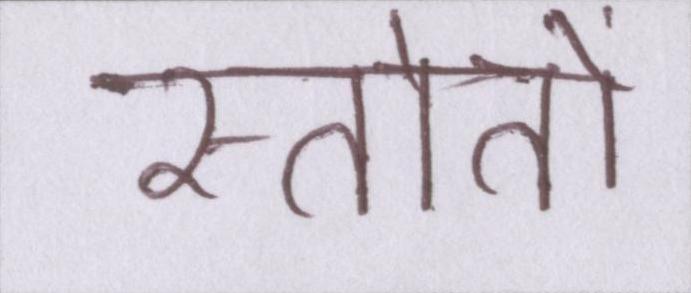 स्तोतों